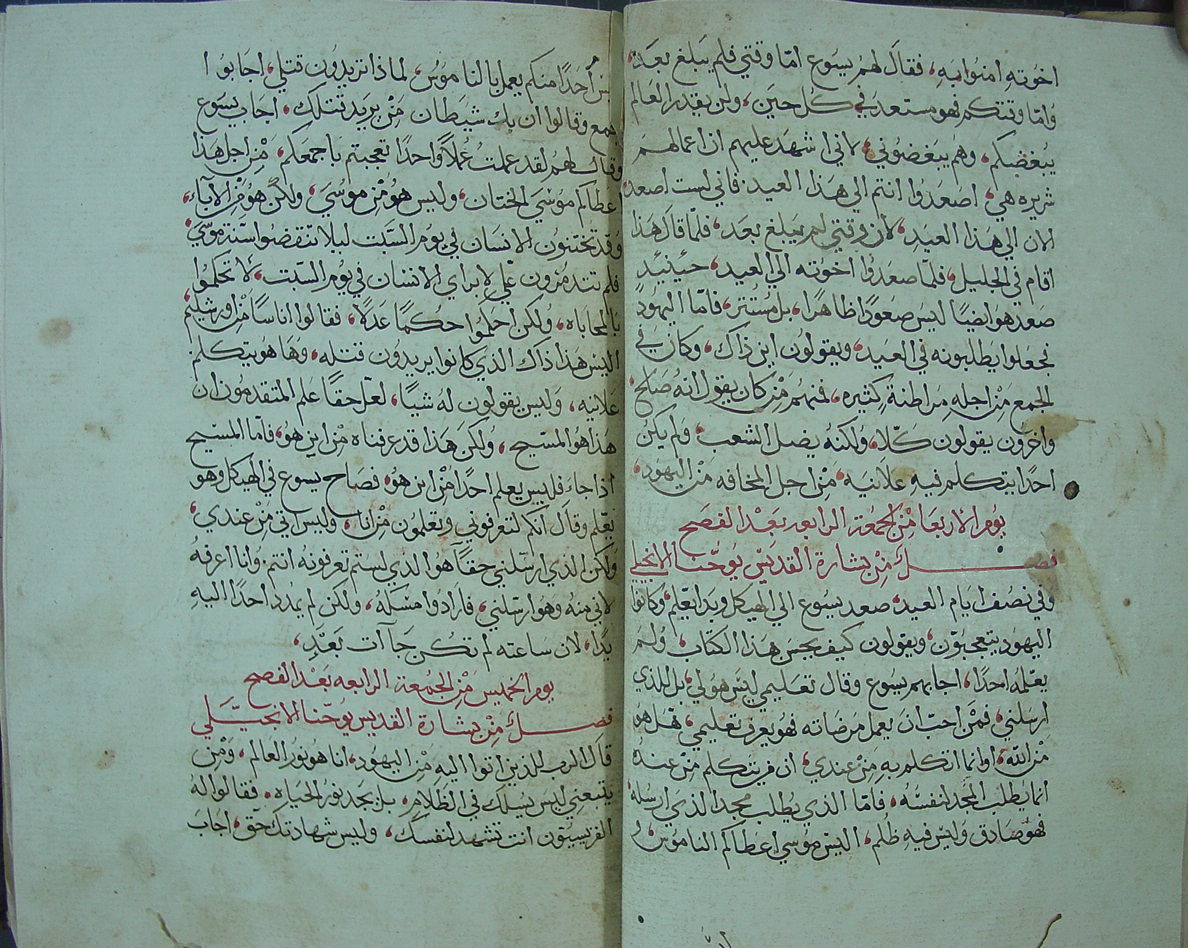 اخوته امنوا به، فقال لهم يسوع امّا وقتي فلم يبلغ بعد،
وامّا وقتكم فهو مستعد في كل حين، ولن يقدر العالم
يبغضكم، وهم يبغضوني، لاني اشهد عليهم ان اعمالهم
شريره هي، اصعدوا انتم الي هذا العيد فاني لست اصعد،
الان الي هذا العيد، لان وقتي لم يبلغ بعد، فلمّا قال هذا
اقام في الجليل، فلما صعدوا اخوته الي العيد، حينيد
صعد هو ايضًا ليس صعودًا ظاهرًا، بل مستتر، فامّا اليهود
فجعلوا يطلبونه في العيد، ويقولون اين ذاك، وكان في
الجمع من اجله مراطنة كثيره، فمنهم من كان يقول انه صالح،
واخرون يقولون كلا، ولكنه يضل الشعب، ولم يكن
احدًا يتكلم فيه علانيه، من اجل المخافه من اليهود،
يوم الاربعا من الجمعة الرابعه بعد الفصح
فصل من بشارة القديس يوحنا الانجيلي
وفي نصف ايام العيد، صعد يسوع الي الهيكل وبدا يعلم، وكانوا
اليهود يتعجبون، ويقولون كيف يحسن هذا الكتاب، ولم
يعلمه احدًا، اجابهم يسوع وقال تعليمي ليس هو لي، بل للذي
ارسلني، فمن احب ان يعمل مرضاته فهو يعرف تعليمي، هل هو
من الله، او انما اتكلم به من عندي، ان من يتكلم من عنده
انما يطلب المجد لنفسه، فامّا الذي يطلب مجد الذي ارسله،
فهو صادق وليس فيه ظلم، اليس موسي اعطاكم الناموس، و
ليس أحدًا منكم يعمل بالناموس، لماذا تريدون قتلي، اجابوا ا
لجمع وقالوا ان بك شيطان من يريد قتلك، اجاب يسوع
وقال لهم لقد عملت عملًا واحدًا تعجبتم باجمعكم، من اجل هذا
اعطاكم موسي الختان، وليس هو من موسي، ولكن هو من الاباء،
وقد تختنون الانسان في يوم السبت ليلا تنقضوا سنة موسي،
فلم تتدمرون علي لابراي الانسان في يوم السبت، لا تحكموا
بالمحاباه، ولكن احكموا حكمًا عدلًا، فقالوا اناسًا من اورشليم
اليس هذا ذاك الذي كانوا يريدون قتله، وها هو يتكلم
علانيه، وليس يقولون له شيا، لعل حقًا علم المتقدمون ان
هذا هو المسيح، ولكن هذا قد عرفناه من اين هو، فامّا المسيح
اذا جا فليس يعلم احدًا من اين هو، فصاح يسوع في الهيكل وهو
يعلم وقال انكم لتعرفوني وتعلمون من انا، وليس اتي من عندي،
ولكن الذي ارسلني حقًا هو الذي لستم تعرفونه انتم، وانا اعرفه
لاني منه وهو ارسلني، فارادوا مسكه، ولكن لم يمدد احدًا اليه
يدًا، لان ساعته لم تكن جاات بعد،
يوم الخميس من الجمعة الرابعه بعد الفصح
فصل من بشارة القديس يوحنا الانجيلي
قال الرب للذين اتوا اليه من اليهود، انا هو نور العالم، ومن
يتبعني ليس يسلك في الظلام، بل يجد نور الحياه، فقالوا له
الفريسيون انت تشهد لنفسك، وليس شهادتك حق، اجاب